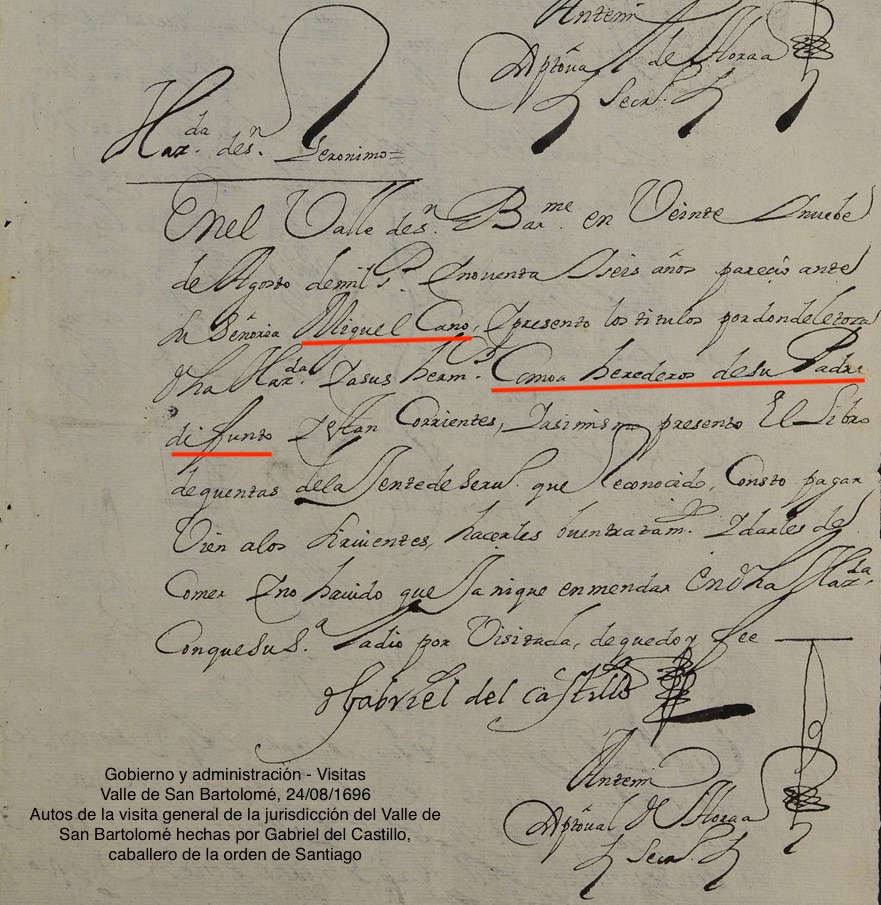 Antemi
de Horaa
Secr.
Haz.da de S.n Geronimo=
En el Valle de S.n Bar.me en Veinte Y nuebe
de Agosto de mil Y nouenta Y seis años pareçio ante
Su Señoria Miguel Cano, Y presento los titulos por donde le toca
dha Haz.da Y a sus herm.s Como a herederos de su Padre
difunto Y estan Corrientes, Y asimismo presento El Libro
de quentas de la Jente de seru.o que Reconocido, Consto pagar
Vien a los siruientes, hacerles buen tratam.to Y darles de
Comer Y no hauido que sanique enmendar En dha Haz.da
Con que Su S.a la dio por Visitada, de que doy fee
Gabriel del Castillo
Antemi
de Horaa
Secr.
Gobierno y administración - Visitas
Valle de San Bartolomé, 24/08/1696
Autos de la visita general de la jurisdicción del Valle de
San Bartolomé hechas por Gabriel del Castillo,
caballero de la orden de Santiago